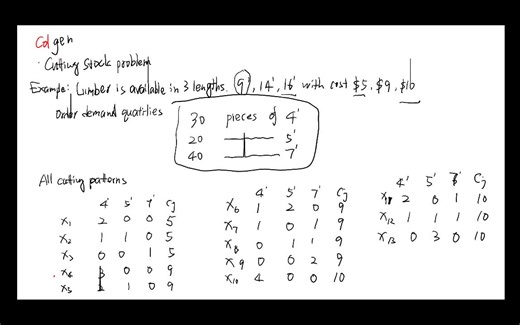 Col gen
· Cutting stock problem
Example: Lumber is available in 3 lengths. 9', 14', 16' with cost $5, $9, $10
Order demand quantities
30 pieces of 4'
20 5'
40 7'
All cutting patterns
4' 5' 7' Cj
x1 2 0 0 5
x2 1 1 0 5
x3 0 0 1 5
x4 3 0 0 9
x5 2 1 0 9
4' 5' 7' Cj
x6 1 2 0 9
x7 1 0 1 9
x8 0 1 1 9
x9 0 0 2 9
x10 4 0 0 10
4' 5' 7' Cj
2 0 1 10
x12 1 1 1 10
x13 0 3 0 10